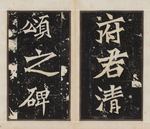 府君清
頌之碑